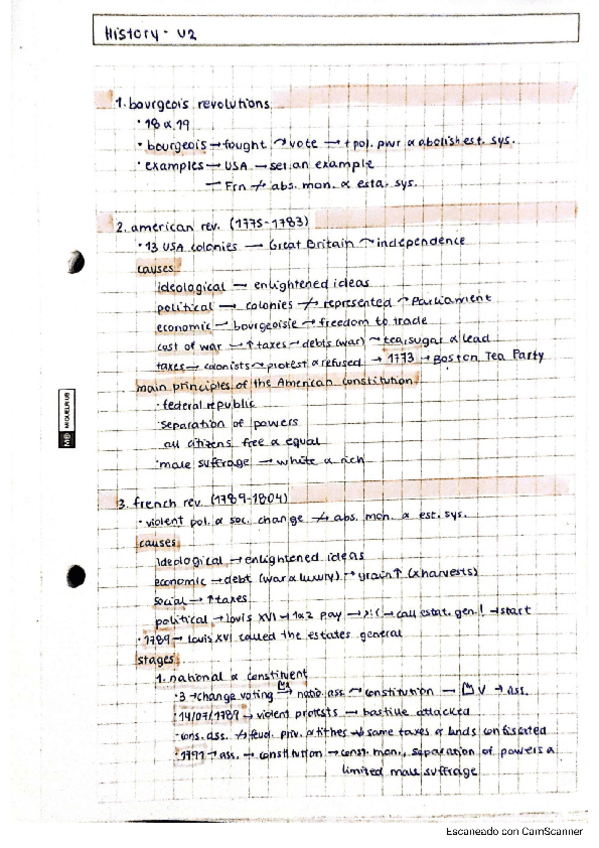 History - U2
1. bourgeois revolutions
· 18 & 19
· bourgeois → fought → vote → + pol. pwr & abolish est. sys.
· examples → USA → set an example
→ Frn ↛ abs. mon. & esta. sys.
2. american rev. (1775-1783)
· 13 USA colonies → Great Britain → independence
causes
ideological → enlightened ideas
political → colonies ↛ represented → Parliament
economic → bourgeoisie → freedom to trade
cost of war → ↑ taxes → debts (war) → tea, sugar & lead
taxes → colonists → protest & refused → 1773 → Boston Tea Party
main principles of the American constitution
· federal republic
· separation of powers
all citizens free & equal
· male suffrage → white & rich
3. french rev. (1789-1804)
· violent pol. & soc. change ↛ abs. mon. & est. sys.
causes
ideological → enlightened ideas
economic → debt (war & luxury) → grain ↑ (x harvests)
social → ↑ taxes
political → louis XVI → 1 & 2 pay → :( → call estat. gen.! → start
· 1789 → louis XVI called the estates general
stages
1. national & constituent
· 3 → change voting → natio. ass. → constitution → V → ass.
· 14/07/1789 → violent protests → bastille attacked
· cons. ass. ↛ feud. priv. & tithes → same taxes & lands confiscated
· 1791 → ass. → constitution → const. mon., separation of powers &
limited male suffrage
MIQUELRIUS
Escaneado con CamScanner